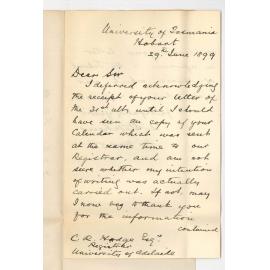 University of Tasmania
Hobart
29th June 1899
Dear Sir
I deferred acknowledging
the receipt of your letter of
the 21st ulto until I should
have seen an copy of your
Calendar which was sent
at the same time to our
Registrar, and am not
sure whether my intention
of writing was actually
carried out. If not, may
I now beg to thank you
for the information
contained
C. R. Hodge Esqr
Registrar
University of Adelaide